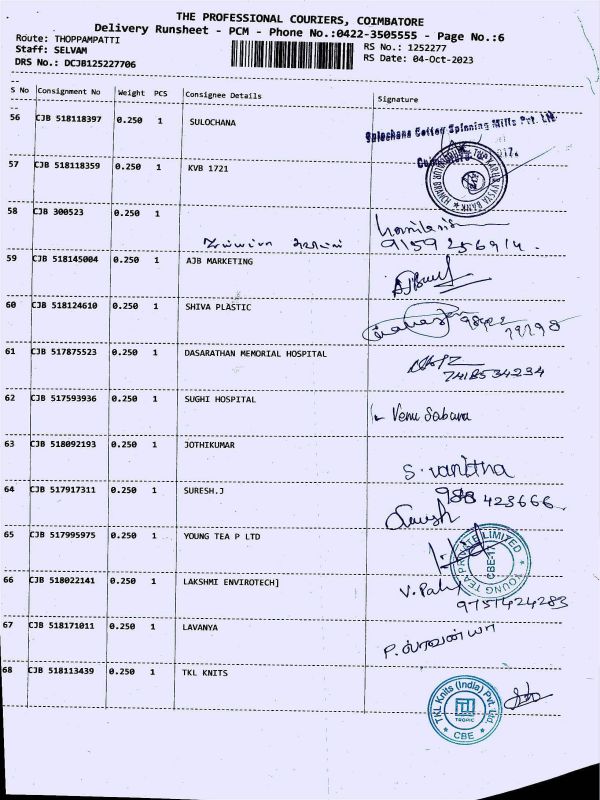 THE PROFESSIONAL COURIERS, COIMBATORE
Delivery Runsheet - PCM - Phone No.:0422-3505555 - Page No.:6
Route: THOPPAMPATTI RS No.: 1252277
Staff: SELVAM RS Date: 04-Oct-2023
DRS No.: DCJB125227706
S No Consignment No Weight PCS Consignee Details Signature
56 CJB 518118397 0.250 1 SULOCHANA
Sulochana Cotton Spinning Mills Pvt. Ltd
57 CJB 518118359 0.250 1 KVB 1721
KARUR VYSYA BANK
58 CJB 300523 0.250 1
59 CJB 518145004 0.250 1 AJB MARKETING
60 CJB 518124610 0.250 1 SHIVA PLASTIC
61 CJB 517875523 0.250 1 DASARATHAN MEMORIAL HOSPITAL
7418534234
62 CJB 517593936 0.250 1 SUGHI HOSPITAL
Venu Sabara
63 CJB 518092193 0.250 1 JOTHIKUMAR
S. vanitha
64 CJB 517917311 0.250 1 SURESH.J
423666
65 CJB 517995975 0.250 1 YOUNG TEA P LTD
YOUNG TEA PRIVATE LIMITED
CBE-17
66 CJB 518022141 0.250 1 LAKSHMI ENVIROTECH]
9751424283
67 CJB 518171011 0.250 1 LAVANYA
68 CJB 518113439 0.250 1 TKL KNITS
TKL Knits (India) Pvt. Ltd.
TROPIC
CBE